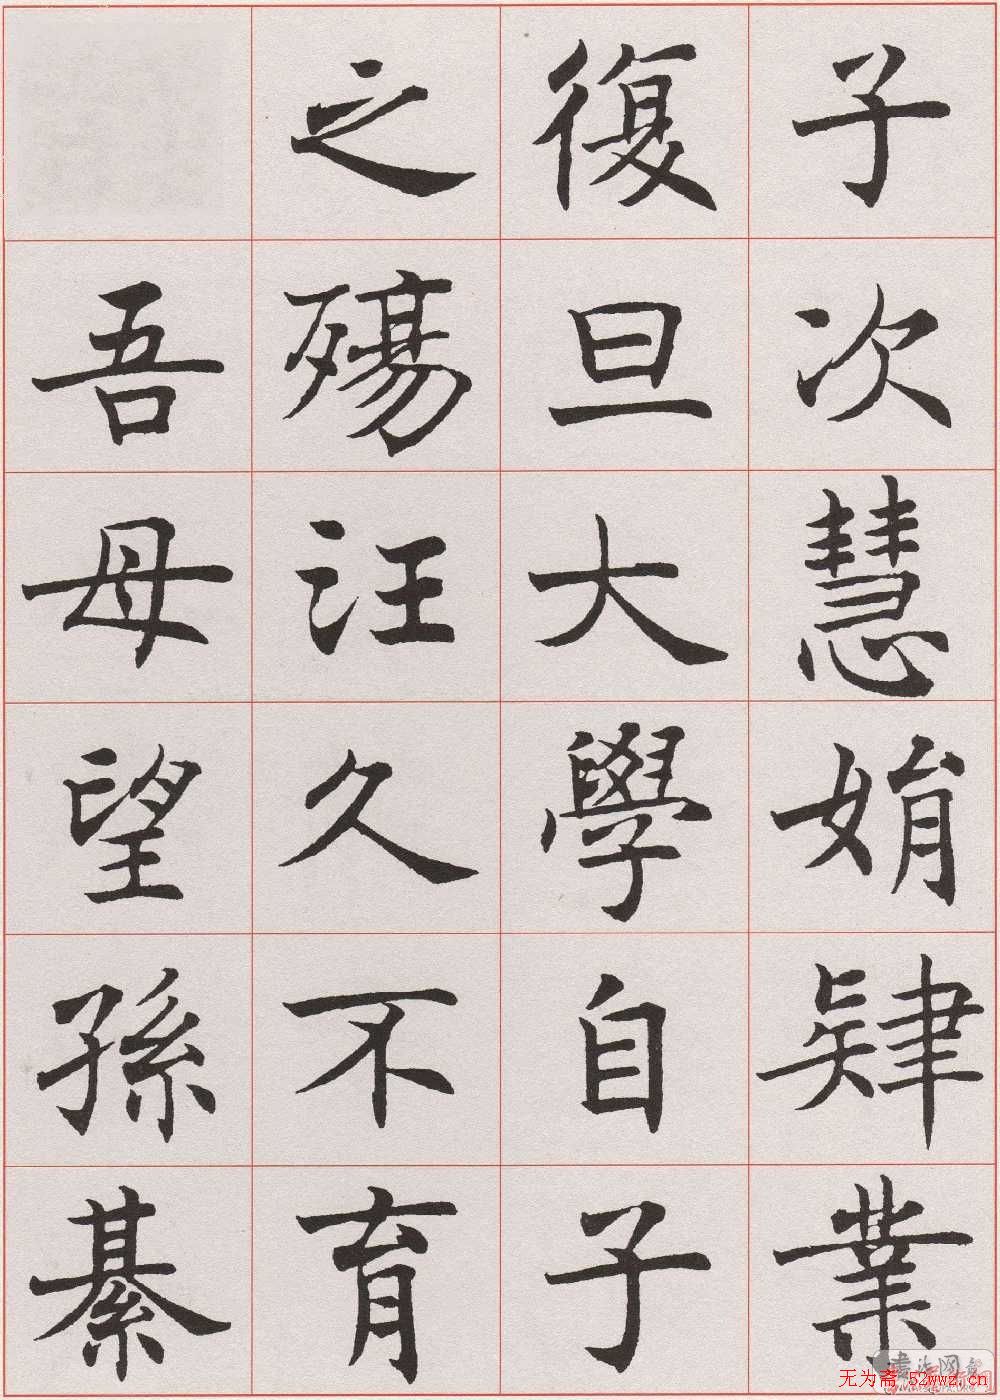 子次慧娟肄業
復旦大學自子
之殤汪久不育
吾母望孫綦
无为斋 52wwz.cn